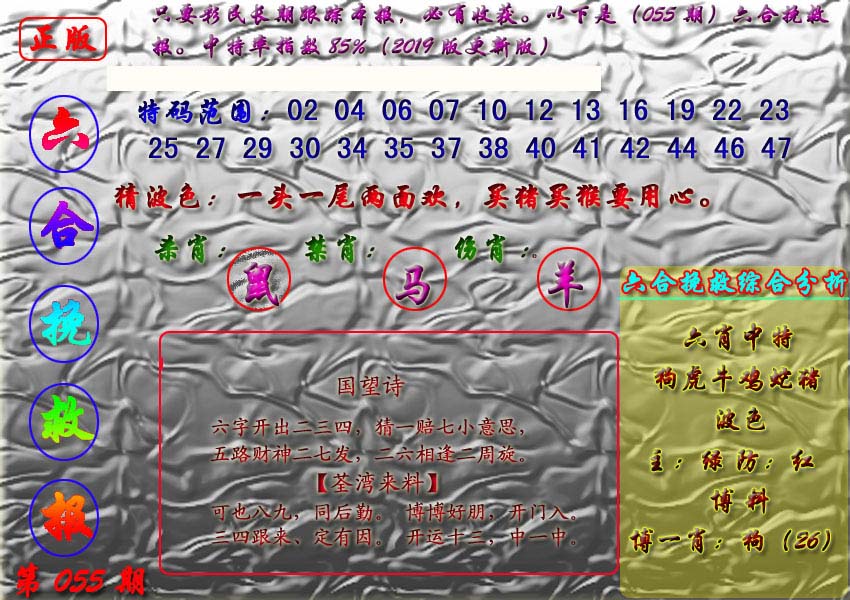 正版
只要彩民长期跟踪本报，必有收获。以下是（055期）六合挽救
报。中特率指数85%（2019版更新版）
六
合
挽
救
报
第055期
特码范围：02 04 06 07 10 12 13 16 19 22 23
25 27 29 30 34 35 37 38 40 41 42 44 46 47
猜波色：一头一尾两面欢，买猪买猴要用心。
杀肖：鼠 禁肖：马 伤肖：。羊
国望诗
六字开出二三四，猜一赔七小意思，
五路财神二七发，二六相逢二周旋。
【荃湾来料】
可也八九，同后勤。 博博好朋，开门入。
三四跟来、定有因。 开运十三，中一中。
六合挽救综合分析
六肖中特
狗虎牛鸡蛇猪
波色
主：绿防：红
博料
博一肖：狗（26）